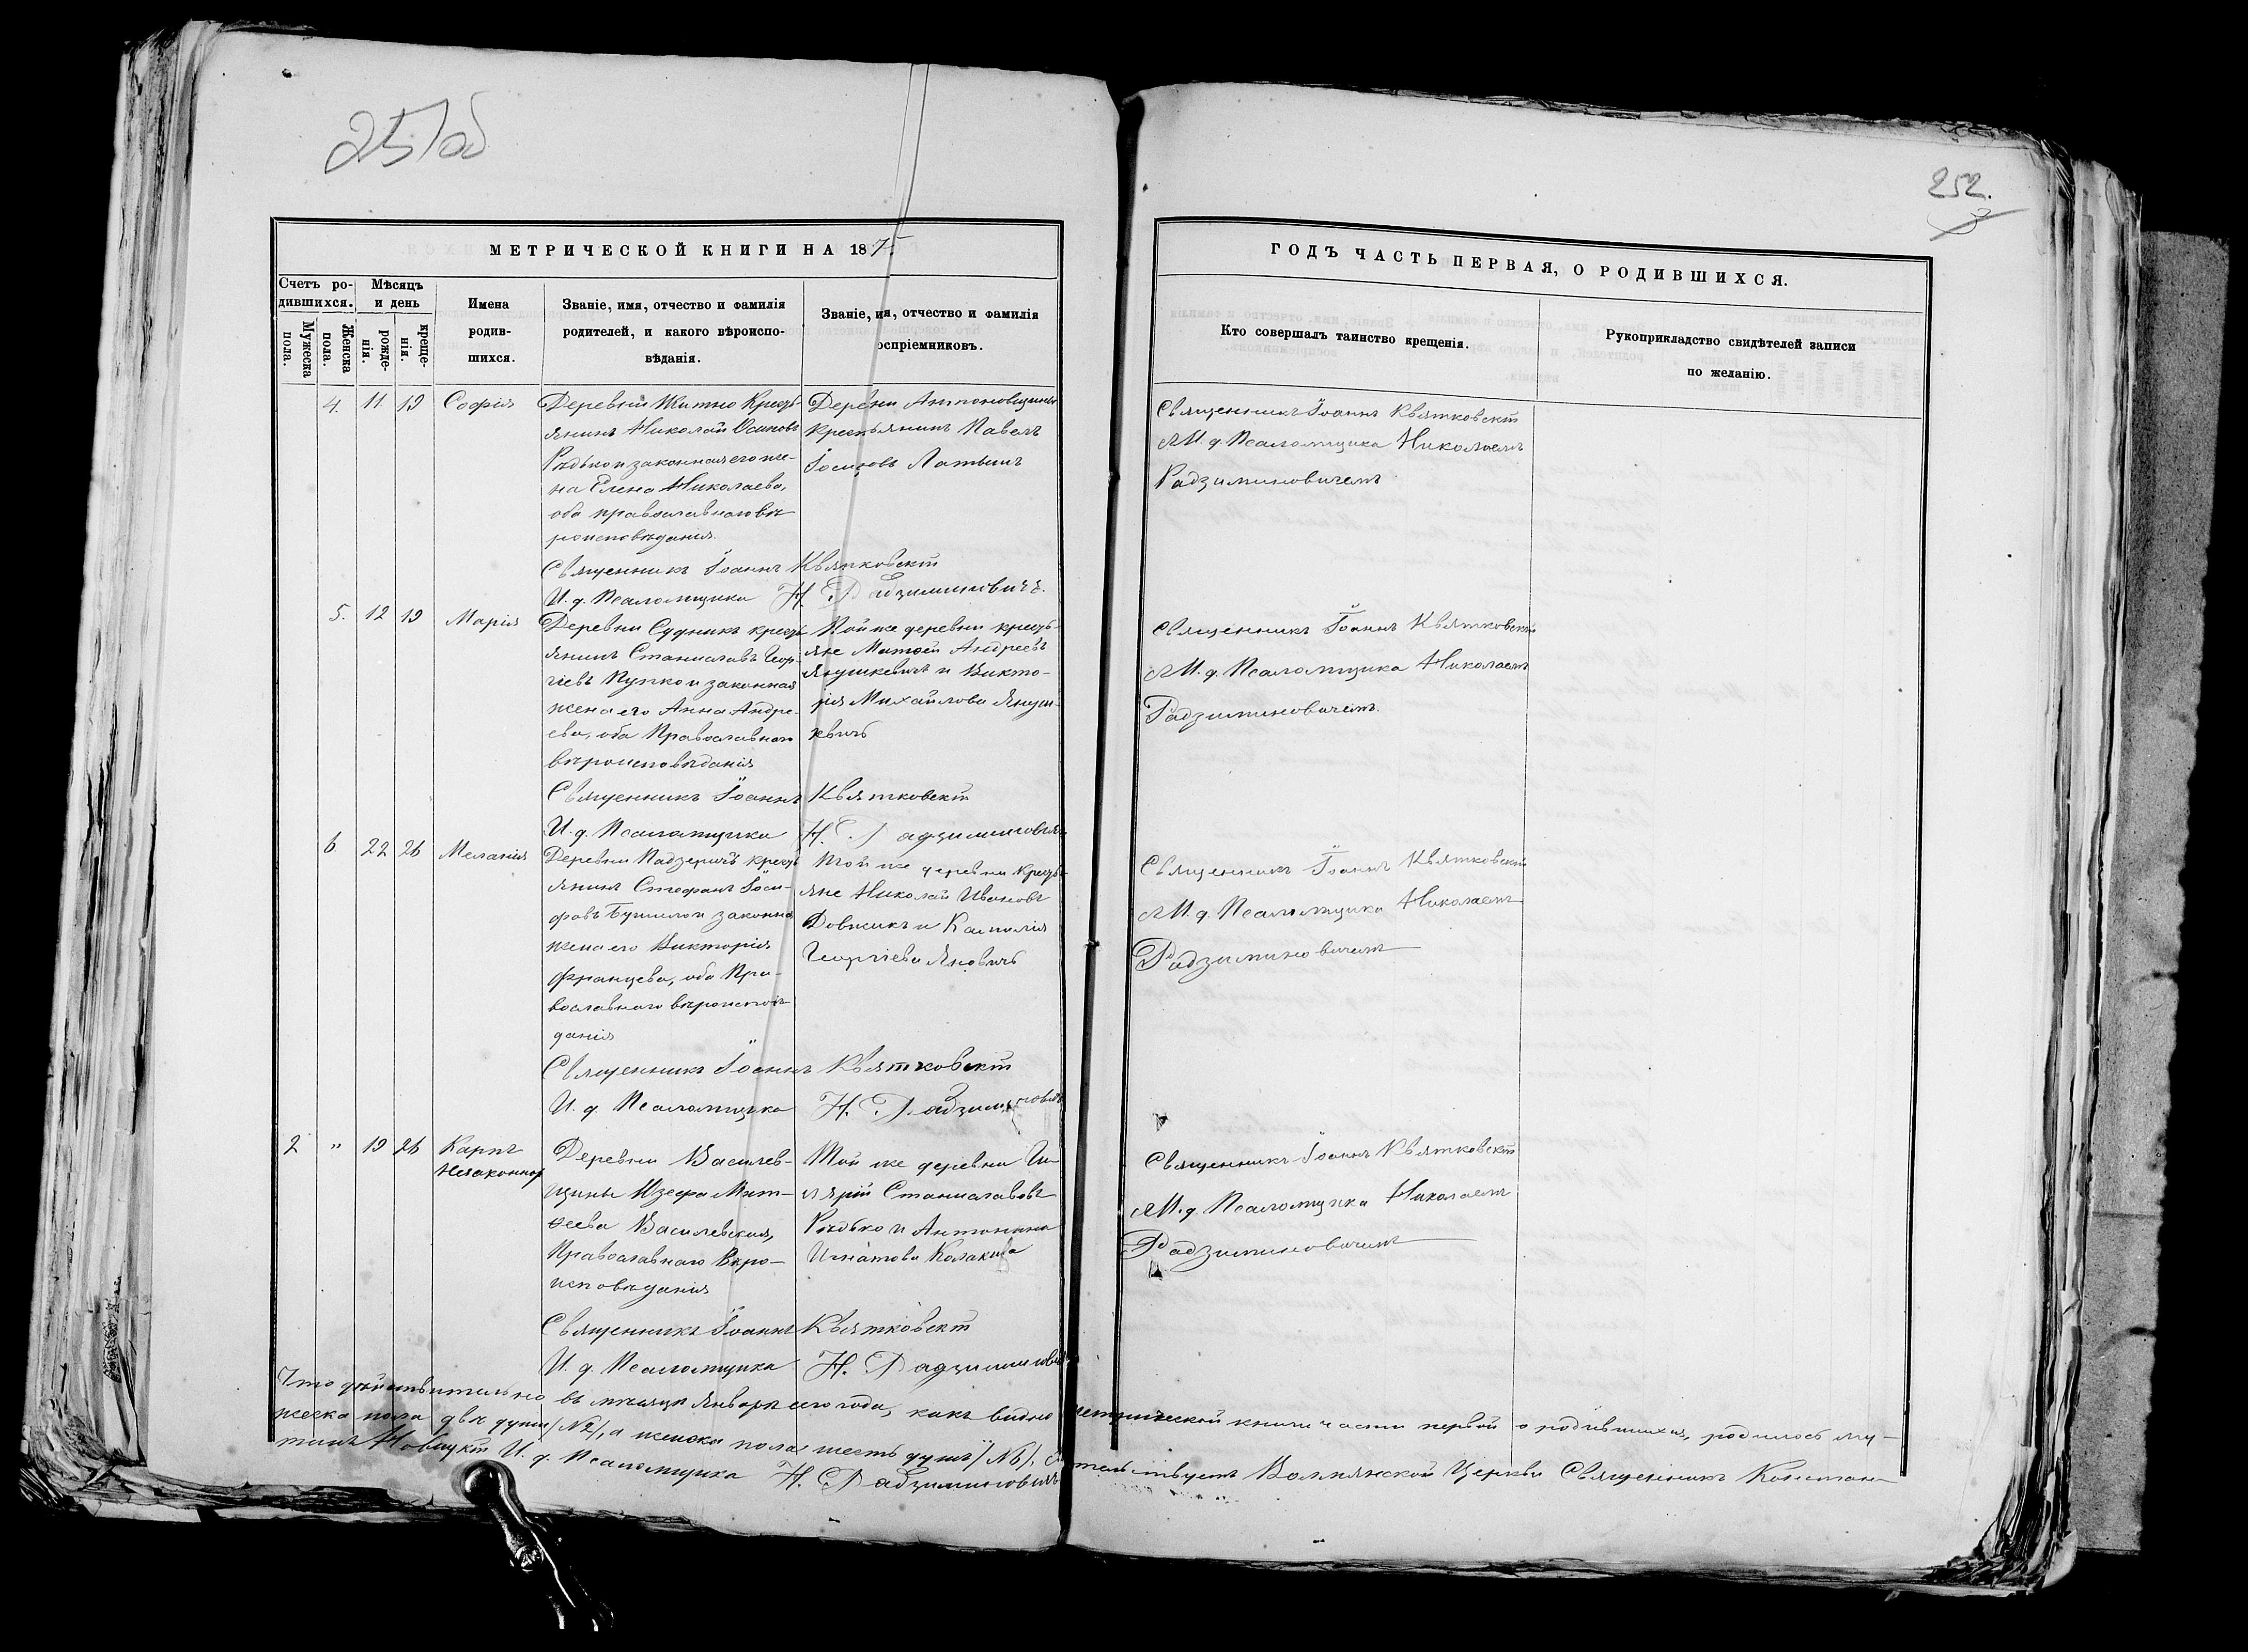 251об
252.
МЕТРИЧЕСКОЙ КНИГИ НА 1875
Счетъ ро-
дившихся.
Мужеска пола.
Женска пола.
Мѣсяцъ
и день
рожде-
нія.
креще-
нія.
Имена
родив-
шихся.
Званіе, имя, отчество и фамилія
родителей, и какого вѣроиспо-
вѣданія.
Званіе, ия, отчество и фамилія
оспріемниковъ.
4. 11 19 Софія
Деревни Житно Кресть-
янинъ Николай Осиповъ
Рѣдько и законная его же-
на Елена Николаева,
оба православнаго вѣ
роисповѣданія.
Деревни Антоновщины
Крестьянинъ Павелъ
Іосифовъ
Священникъ Іоаннъ Квятковскій
И. д. Псаломщика Н. Радзиминовичъ.
5. 12 19 Марія
Деревни Судникъ кресть
янинъ Станиславъ Геор-
гіевъ Пупко и законная
жена его Анна Андре-
ева, оба Православнаго
вѣроисповѣданія
Той же деревни кресть-
яне Матѳей Андреевъ
Янушкевичъ и Викто-
рія Михайлова Януш-
кевичъ
Священникъ Іоаннъ Квятковскій
И. д. Псаломщика Н. Радзиминовичъ
6. 22 26 Меланія
Деревни Падзеричъ кресть
янинъ Стефанъ Іоси-
фовъ Бушило и законна
жена его Викторія
Францева, оба Пра-
вославнаго вѣроисповѣ
данія
Той же деревни кресть-
яне Николай Ивановъ
Довжикъ и
Георгіева Яновичъ
Священникъ Іоаннъ Квятковскій
И. д. Псаломщика Н. Радзиминовичъ
2 " 19 26 Карпъ
Незаконнор
Деревни Василев-
щины Юзефа Мат-
ѳеева Василевская,
Православнаго Вѣро-
исповѣданія
Той же деревни Ил-
лярій Станиславовъ
Рѣдько и Антонина
Игнатова
Священникъ Іоаннъ Квятковскій
И. д. Псаломщика Н. Радзиминовичъ
ГОДЪ ЧАСТЬ ПЕРВАЯ, О РОДИВШИХСЯ.
Кто совершалъ таинство крещенія.
Рукоприкладство свидѣтелей записи
по желанію.
Священникъ Іоаннъ Квятковскій
с И. д. Псаломщика Николаемъ
Радзиминовичемъ
Священникъ Іоаннъ Квятковскій
с И. д. Псаломщика Николаемъ
Радзиминовичемъ.
Священникъ Іоаннъ Квятковскій
с И. д. Псаломщика Николаемъ
Радзиминовичемъ
Священникъ Іоаннъ Квятковскій
с И. д. Псаломщика Николаемъ
Радзиминовичемъ
Что дѣйствительно въ мѣсяцѣ Январѣ сего года, какъ видно метрической книги части первой о родившихся, родилось му-
жеска пола двѣ души /№ 2/, а женска пола шесть душъ /№ 6/, Волнянской Церкви Священникъ Констан-
тинъ Новицкій И. д. Псаломщика Н. Радзиминовичъ